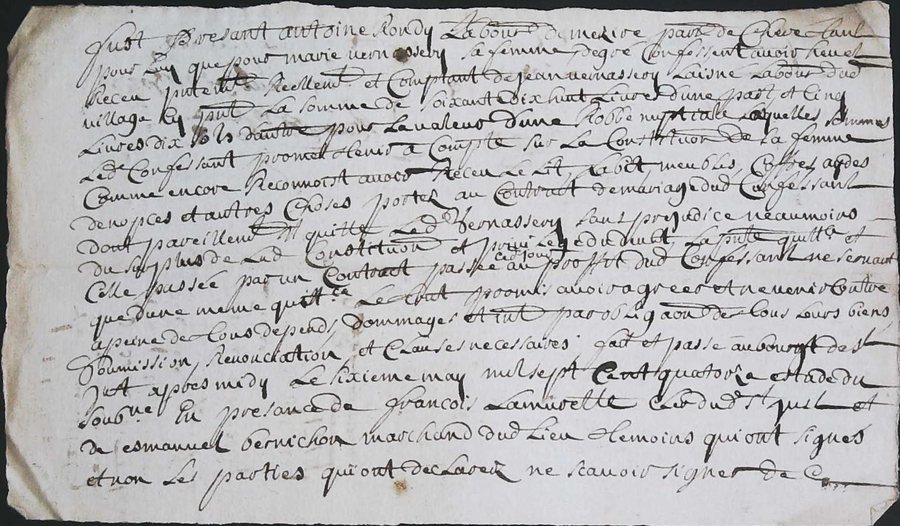 fust presant antoine Rondy Labour de mezire parr de Cheve tant
pour Luy que pour marie vernassery sa femme degre Confessent avoir heu et
Receu putemt Reellemt et Comptant de jean vernassery Laisne Labour dud
village Cy put La somme de soixante dix huit Livres dune part et Cinq
Livres dix sols dautre pour La valeur dune Robbe nuptialle Laquelles sommes
Led Confessant promet tenir a Compte sur La Constituon de sa femme
Comme encore Reconnoist avoir Receu Le Lit, habit, meubles, Coffre,
de nopces et autres Choses portez au Contract de mariage dud Confessant
dont pareillemt il quitte Led Vernassery sans prejudice neaumoins
du surplus de Lad Constituon et privillege dud La pnte quitte et
Celle passée par un Contract passée Ced jour au proffit dud Confessant ne servant
que dune meme quitte Le tout promis avoir agreer et ne venir Contre
a peine de tous depends, dommages et int par obligaon de tous Leurs biens
soumission, Renonciation, et Clauses necessaires fait et passé au bourg de St
just apres midy Le sixieme may mil sept Cent quatorze
soubne En presance de francois Lamurette Clerc dud St just et
de esmanuel bernichon marchand dud Lieu temoins qui ont signes
et non Les parties qui ont declarez ne scavoir signer de Ce